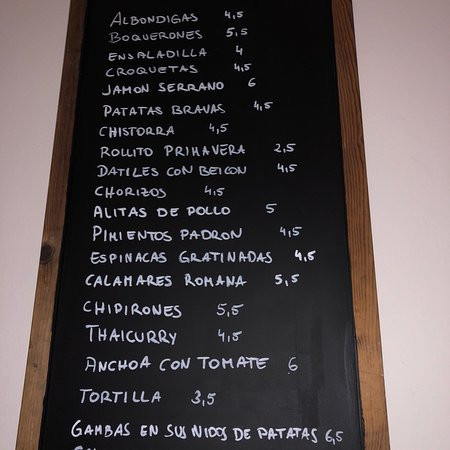 ALBONDIGAS 4,5
BOQUERONES 5,5
ENSALADILLA 4
CROQUETAS 4,5
JAMON SERRANO 6
PATATAS BRAVAS 4,5
CHISTORRA 4,5
ROLLITO PRIMAVERA 2,5
DATILES CON BEICON 4,5
CHORIZOS 4,5
ALITAS DE POLLO 5
PIMIENTOS PADRON 4,5
ESPINACAS GRATINADAS 4,5
CALAMARES ROMANA 5,5
CHIPIRONES 5,5
THAICURRY 4,5
ANCHOA CON TOMATE 6
TORTILLA 3,5
GAMBAS EN SUS NIDOS DE PATATAS 6,5